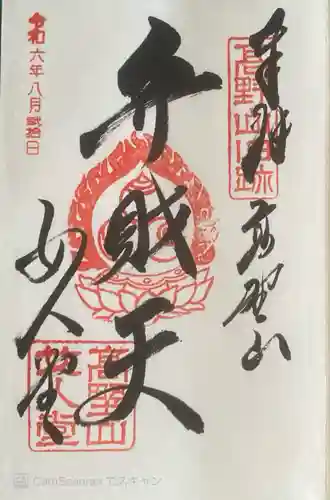 奉拝
高野山
高野山旧跡
弁財天
女人堂
高野山女人堂
令和六年八月弐拾日
CamScanner でスキャン